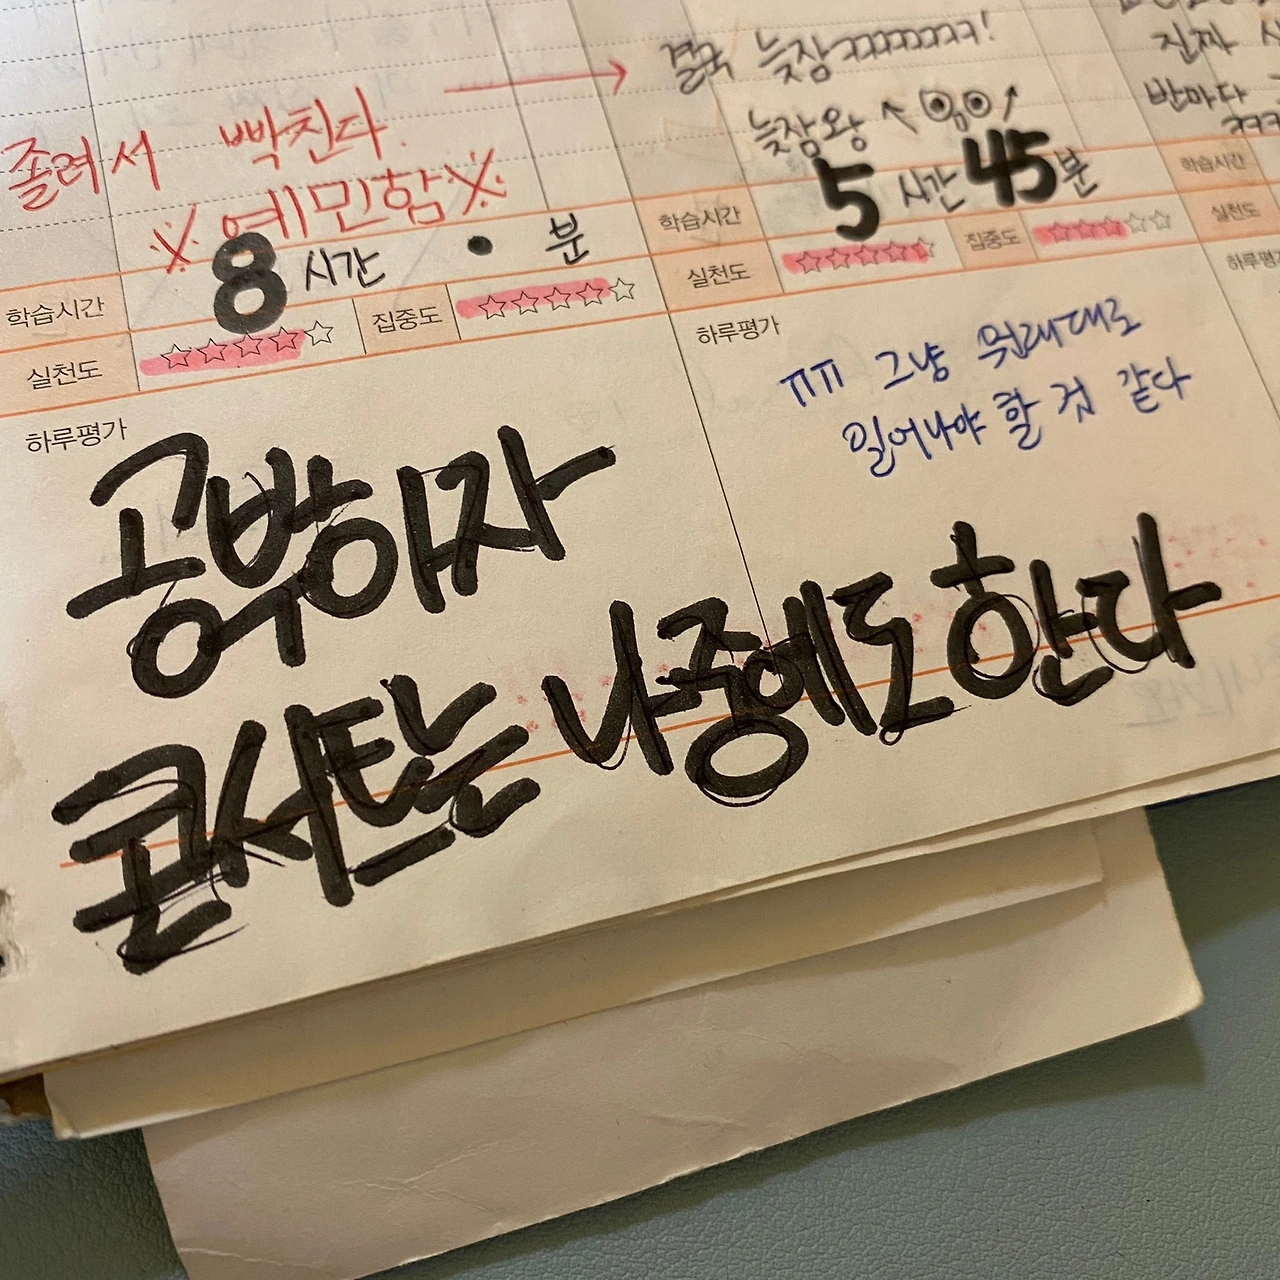 졸려서 빡친다.
※예민함※
8시간 • 분
학습시간
실천도 ☆☆☆☆☆ 집중도 ☆☆☆☆☆
하루평가
공박아자
콘서트는 나중에도 한다
결국 늦잠ㅋㅋㅋㅋㅋㅋㅋ!
늦잠왕
학습시간 5시간 45분
실천도 ☆☆☆☆☆ 집중도 ☆☆☆☆☆
하루평가
ㅠㅠ 그냥 원래대로
일어나야 할 것 같다
진짜
반마다
ㅋㅋㅋ
학습시간
실천도
하루평가